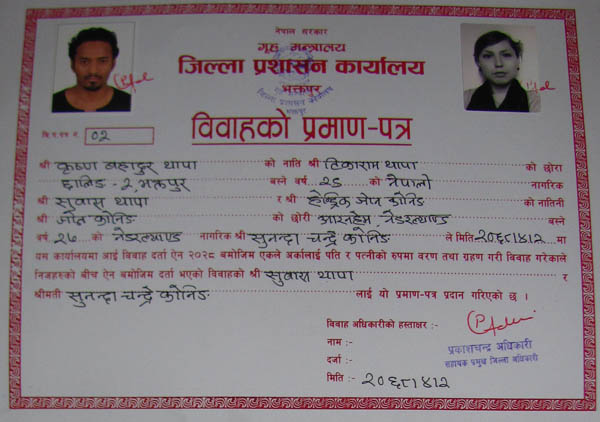 नेपाल सरकार
गृह मन्त्रालय
जिल्ला प्रशासन कार्यालय
भक्तपुर
वि.द.प्र.नं. 02
विवाहको प्रमाण-पत्र
श्री कृष्ण बहादुर थापा को नाति श्री टिकाराम थापा को छोरा
छालिङ-2, भक्तपुर बस्ने वर्ष २८ को नेपाली नागरिक
श्री सुवास थापा र श्री हेन्ड्रिक जोन कोनिङ को नातिनी
श्री जोन कोनिङ को छोरी आरनहेम, नेदरल्याण्ड बस्ने
वर्ष २७ को नेदरल्याण्ड नागरिक श्री सुनन्दा चन्द्रे कोनिङ ले मिति २०६८।४।१२ मा
यस कार्यालयमा आई विवाह दर्ता ऐन २०२८ बमोजिम एकले अर्कालाई पति र पत्नीको रुपमा वरण तथा ग्रहण गरी विवाह गरेकाले
निजहरुको बीच ऐन बमोजिम दर्ता भएको विवाहको श्री सुवास थापा र
श्रीमती सुनन्दा चन्द्रे कोनिङ लाई यो प्रमाण-पत्र प्रदान गरिएको छ ।
विवाह अधिकारीको हस्ताक्षर :-
नाम :-
दर्जा :-
मिति :- २०६८।४।१२
प्रकाशचन्द्र अधिकारी
सहायक प्रमुख जिल्ला अधिकारी